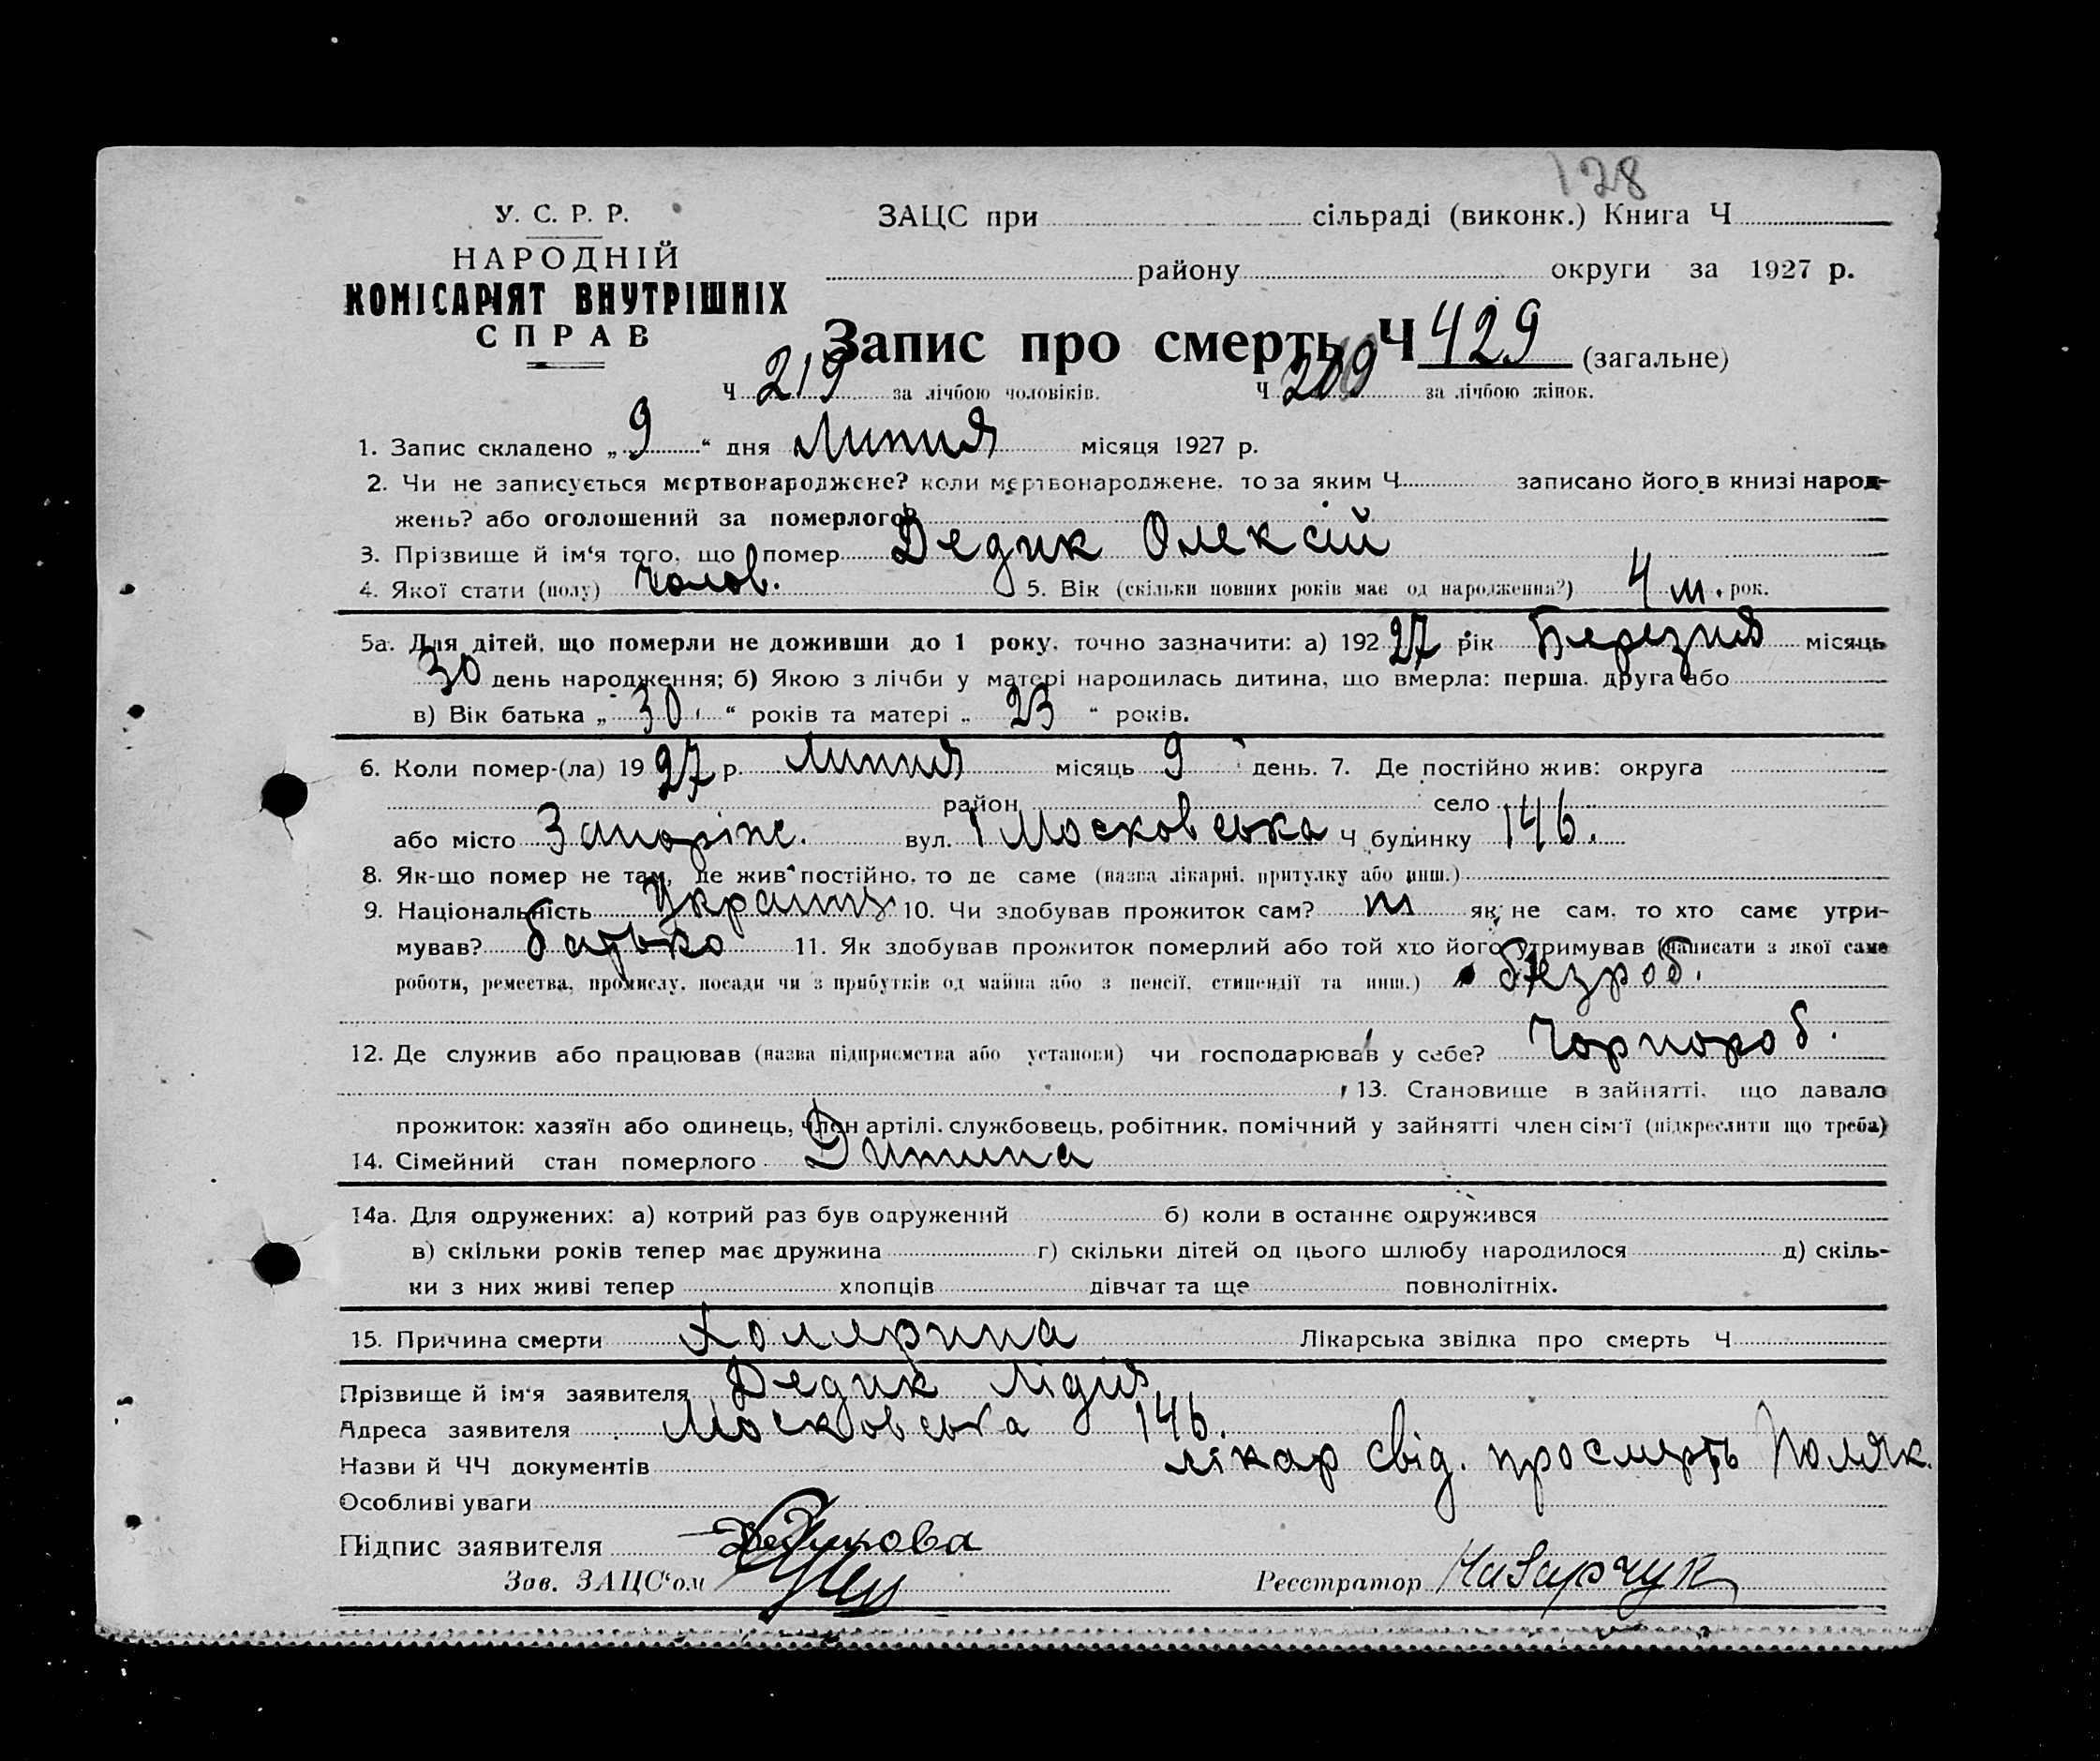 128
У. С. Р. Р.
НАРОДНІЙ
КОМІСАРІЯТ ВНУТРІШНІХ
СПРАВ
ЗАЦС при сільраді (виконк.) Книга Ч
району округи за 1927 р.
Запис про смерть Ч 429 (загальне)
Ч 219 за лічбою чоловіків. Ч за лічбою жінок.
1. Запис складено „ 9 “ дня Липня місяця 1927 р.
2. Чи не записується мертвонароджене? коли мертвонароджене, то за яким Ч записано його в книзі народ-
жень? або оголошений за померлого?
3. Прізвище й ім'я того, що помер Дедик Олексій
4. Якої стати (полу) Чолов. 5. Вік (скільки повних років має од народження?) 4 м. рок.
5а. Для дітей, що померли не доживши до 1 року, точно зазначити: а) 192 27 рік Березня місяць
30 день народження; б) Якою з лічби у матері народилась дитина, що вмерла: перша, друга або
в) Вік батька „ 30 “ років та матері „ 23 “ років.
6. Коли помер-(ла) 19 27 р. Липня місяць 9 день. 7. Де постійно жив: округа
район село
або місто Запоріж. вул. Московська Ч будинку 146.
8. Як-що помер не там, де жив постійно, то де саме (назва лікарні, притулку або инш.)
9. Національність 10. Чи здобував прожиток сам? ні як не сам, то хто саме утри-
мував? батько 11. Як здобував прожиток померлий або той хто його утримував (написати з якої саме
роботи, ремества, промислу, посади чи з прибутків од майна або з пенсії, стипендії та инш.) безроб.
12. Де служив або працював (назва підприємства або установи) чи господарював у себе? Чорнороб.
13. Становище в зайнятті, що давало
прожиток: хазяїн або одинець, член артілі, службовець, робітник, помічний у зайнятті член сім'ї (підкреслити що треба)
14. Сімейний стан померлого Дитина
14а. Для одружених: а) котрий раз був одружений б) коли в останнє одружився
в) скільки років тепер має дружина г) скільки дітей од цього шлюбу народилося д) скіль-
ки з них живі тепер хлопців дівчат та ще повнолітніх.
15. Причина смерти Холерина Лікарська звідка про смерть Ч
Прізвище й ім'я заявителя Дедик Лідія
Адреса заявителя Московська 146.
Назви й ЧЧ документів лікар свід. про смерть Поляк.
Особливі уваги
Підпис заявителя Дедикова
Зав. ЗАЦС'ом Реєстратор Назарчук